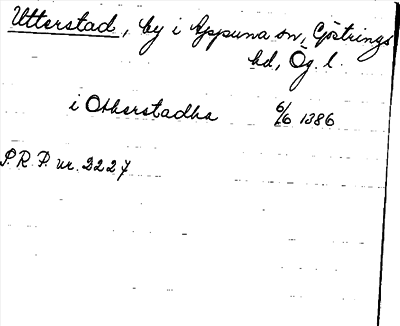 Utterstad, by i Appuna sn, Göstrings
hd, Ög. l.
i Otherstadha 6/6 1386
P.R.P. nr. 2227